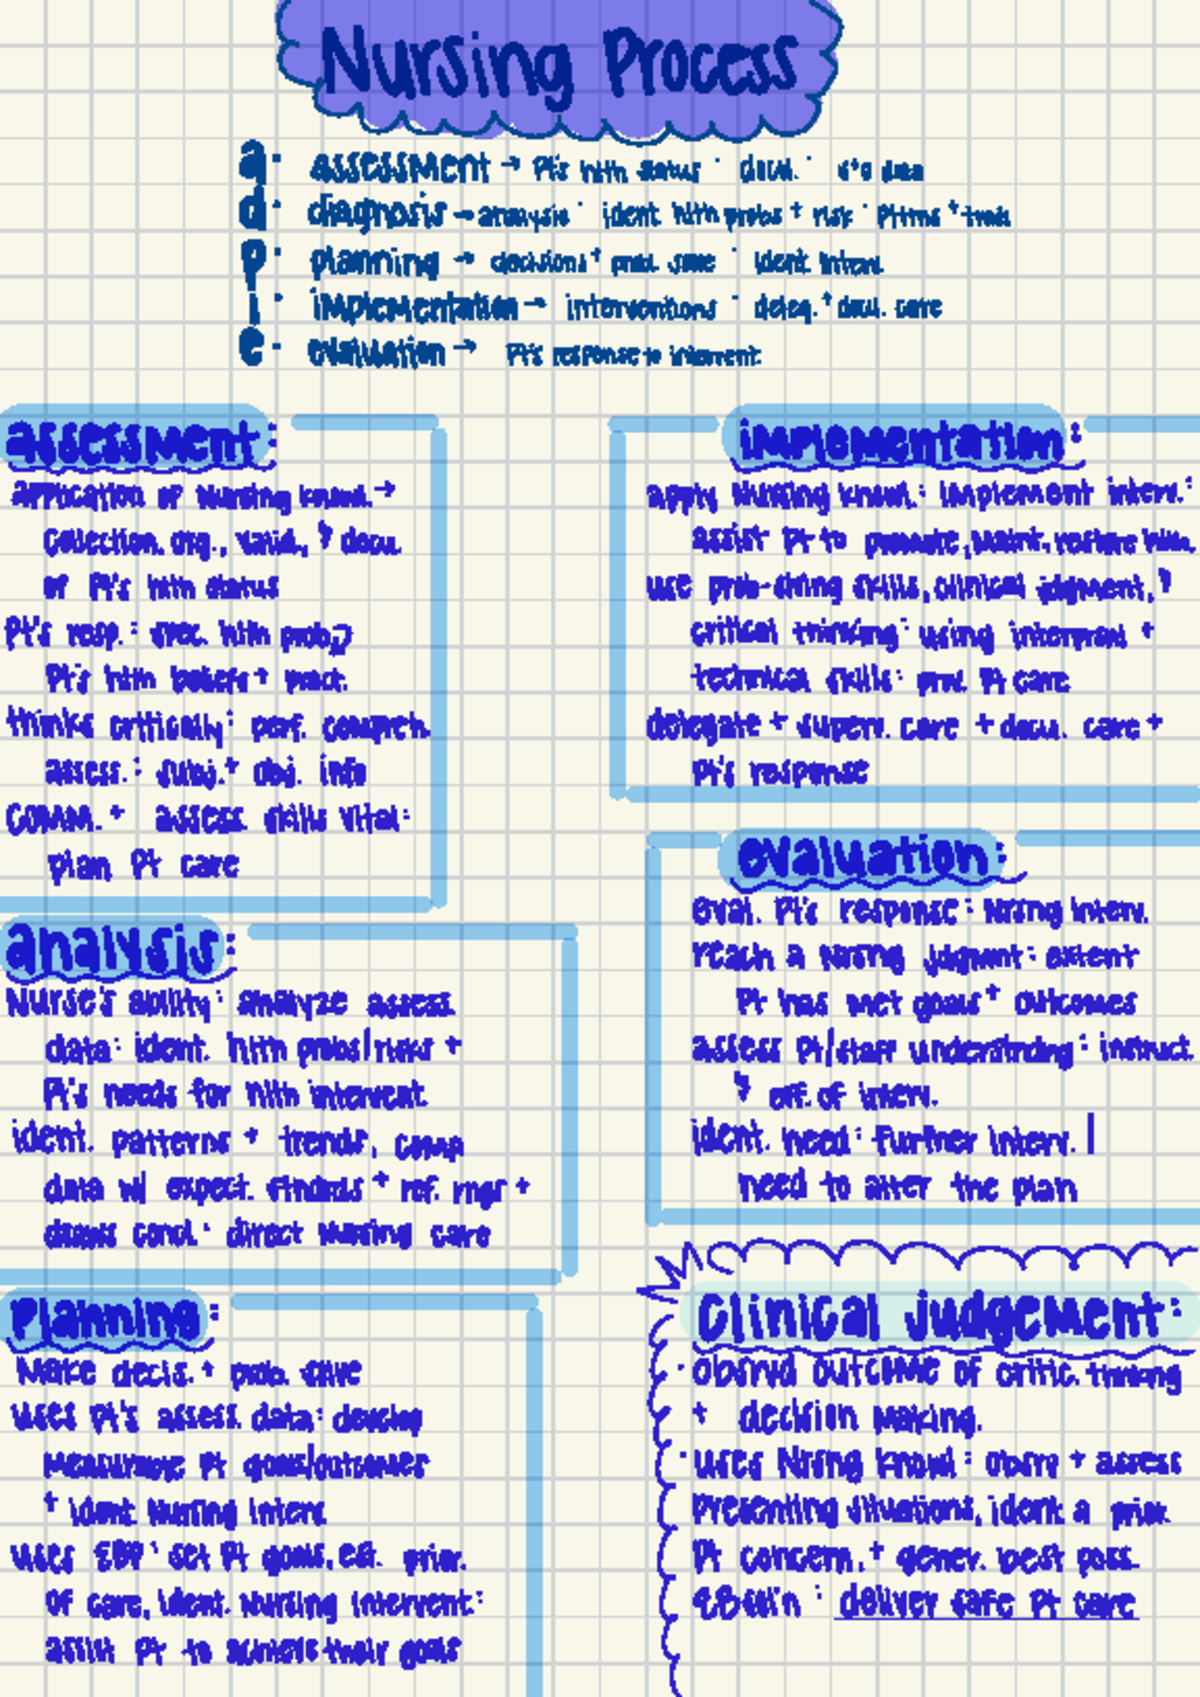 Nursing Process
a: assessment → Pt's hlth status : docu. : s+o data
d: diagnosis → analysis : ident. hlth probs + risk : Pttrns + trends
p: planning → decisions + prob. solve : ident. interv.
i: implementation → interventions : deleg. + docu. care
e: evaluation → Pt's response to intervent.
assessment:
application of Nursing knowl. →
collection, org., valid., & docu.
of Pt's hlth status
Pt's resp. : spec. hlth prob,
Pt's hlth beliefs + pract.
thinks critically : perf. compreh.
assess. : subj. + obj. info
COMM. + assess. skills vital:
plan Pt care
analysis:
Nurse's ability : analyze assess.
data : ident. hlth probs/risks +
Pt's needs for hlth intervent.
ident. patterns + trends, comp
data w/ expect. findings + ref. rngs +
draws concl. : direct Nursing care
Planning:
Make decis. + prob. solve
uses Pt's assess. data : develop
measurable Pt goals/outcomes
+ ident. Nursing interv.
uses EBP : set Pt goals, est. prior.
of care, ident. Nursing intervent. :
assist Pt to achieve their goals
implementation:
apply Nursing knowl. : implement interv. :
assist Pt to promote, maint., restore hlth.
use prob-slving skills, clinical jdgment, &
critical thinking : using interprsnl +
technical skills : prov. Pt care
delegate + superv. care + docu. care +
Pt's response
evaluation:
eval. Pt's response : Nrsng interv.
reach a Nrsng judgmnt : extent
Pt has met goals + outcomes
assess Pt/staff understndng : instruct.
& eff. of interv.
ident. need : further interv. |
need to alter the plan
Clinical judgement:
· obsrvd outcome of critic. thinking
+ decision making.
· uses Nrsng knowl : obsrv + assess
presenting situations, ident. a prior.
Pt concern, + gener. best poss.
: deliver safe Pt care